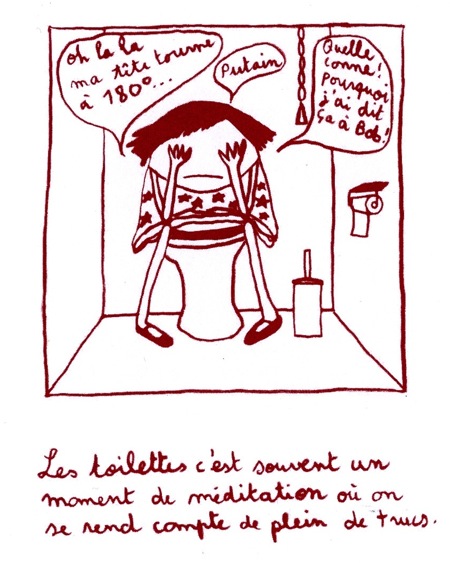 Oh la la
ma tête tourne
à 180°...
Putain
Quelle
conne!
Pourquoi
j'ai dit
ça à Bob!
Les toilettes c'est souvent un
moment de méditation où on
se rend compte de plein de trucs.